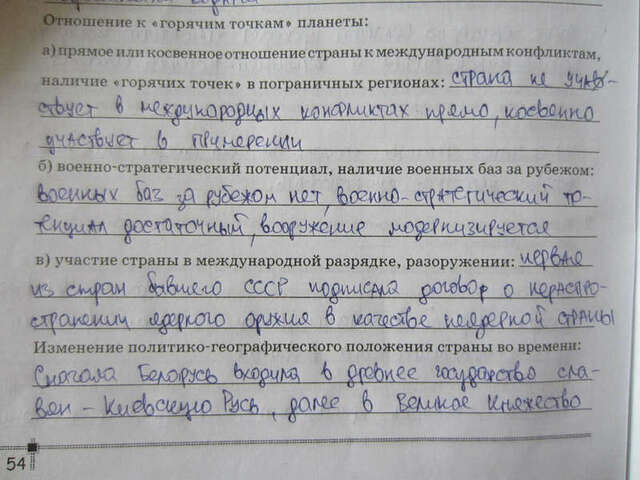 Отношение к «горячим точкам» планеты:
а) прямое или косвенное отношение страны к международным конфликтам,
наличие «горячих точек» в пограничных регионах: страна не участ-
ствует в международных конфликтах прямо, косвенно
участвует в примерении
б) военно-стратегический потенциал, наличие военных баз за рубежом:
военных баз за рубежом нет, военно-стратегический по-
тенциал достаточный, вооружение модернизируется
в) участие страны в международной разрядке, разоружении: первая
из стран бывшего СССР подписала договор о нераспро-
странении ядерного оружия в качестве неядерной страны
Изменение политико-географического положения страны во времени:
Сначала Белорусь входила в древнее государство сла-
вян - Киевскую Русь, далее в Великое Княжество
54